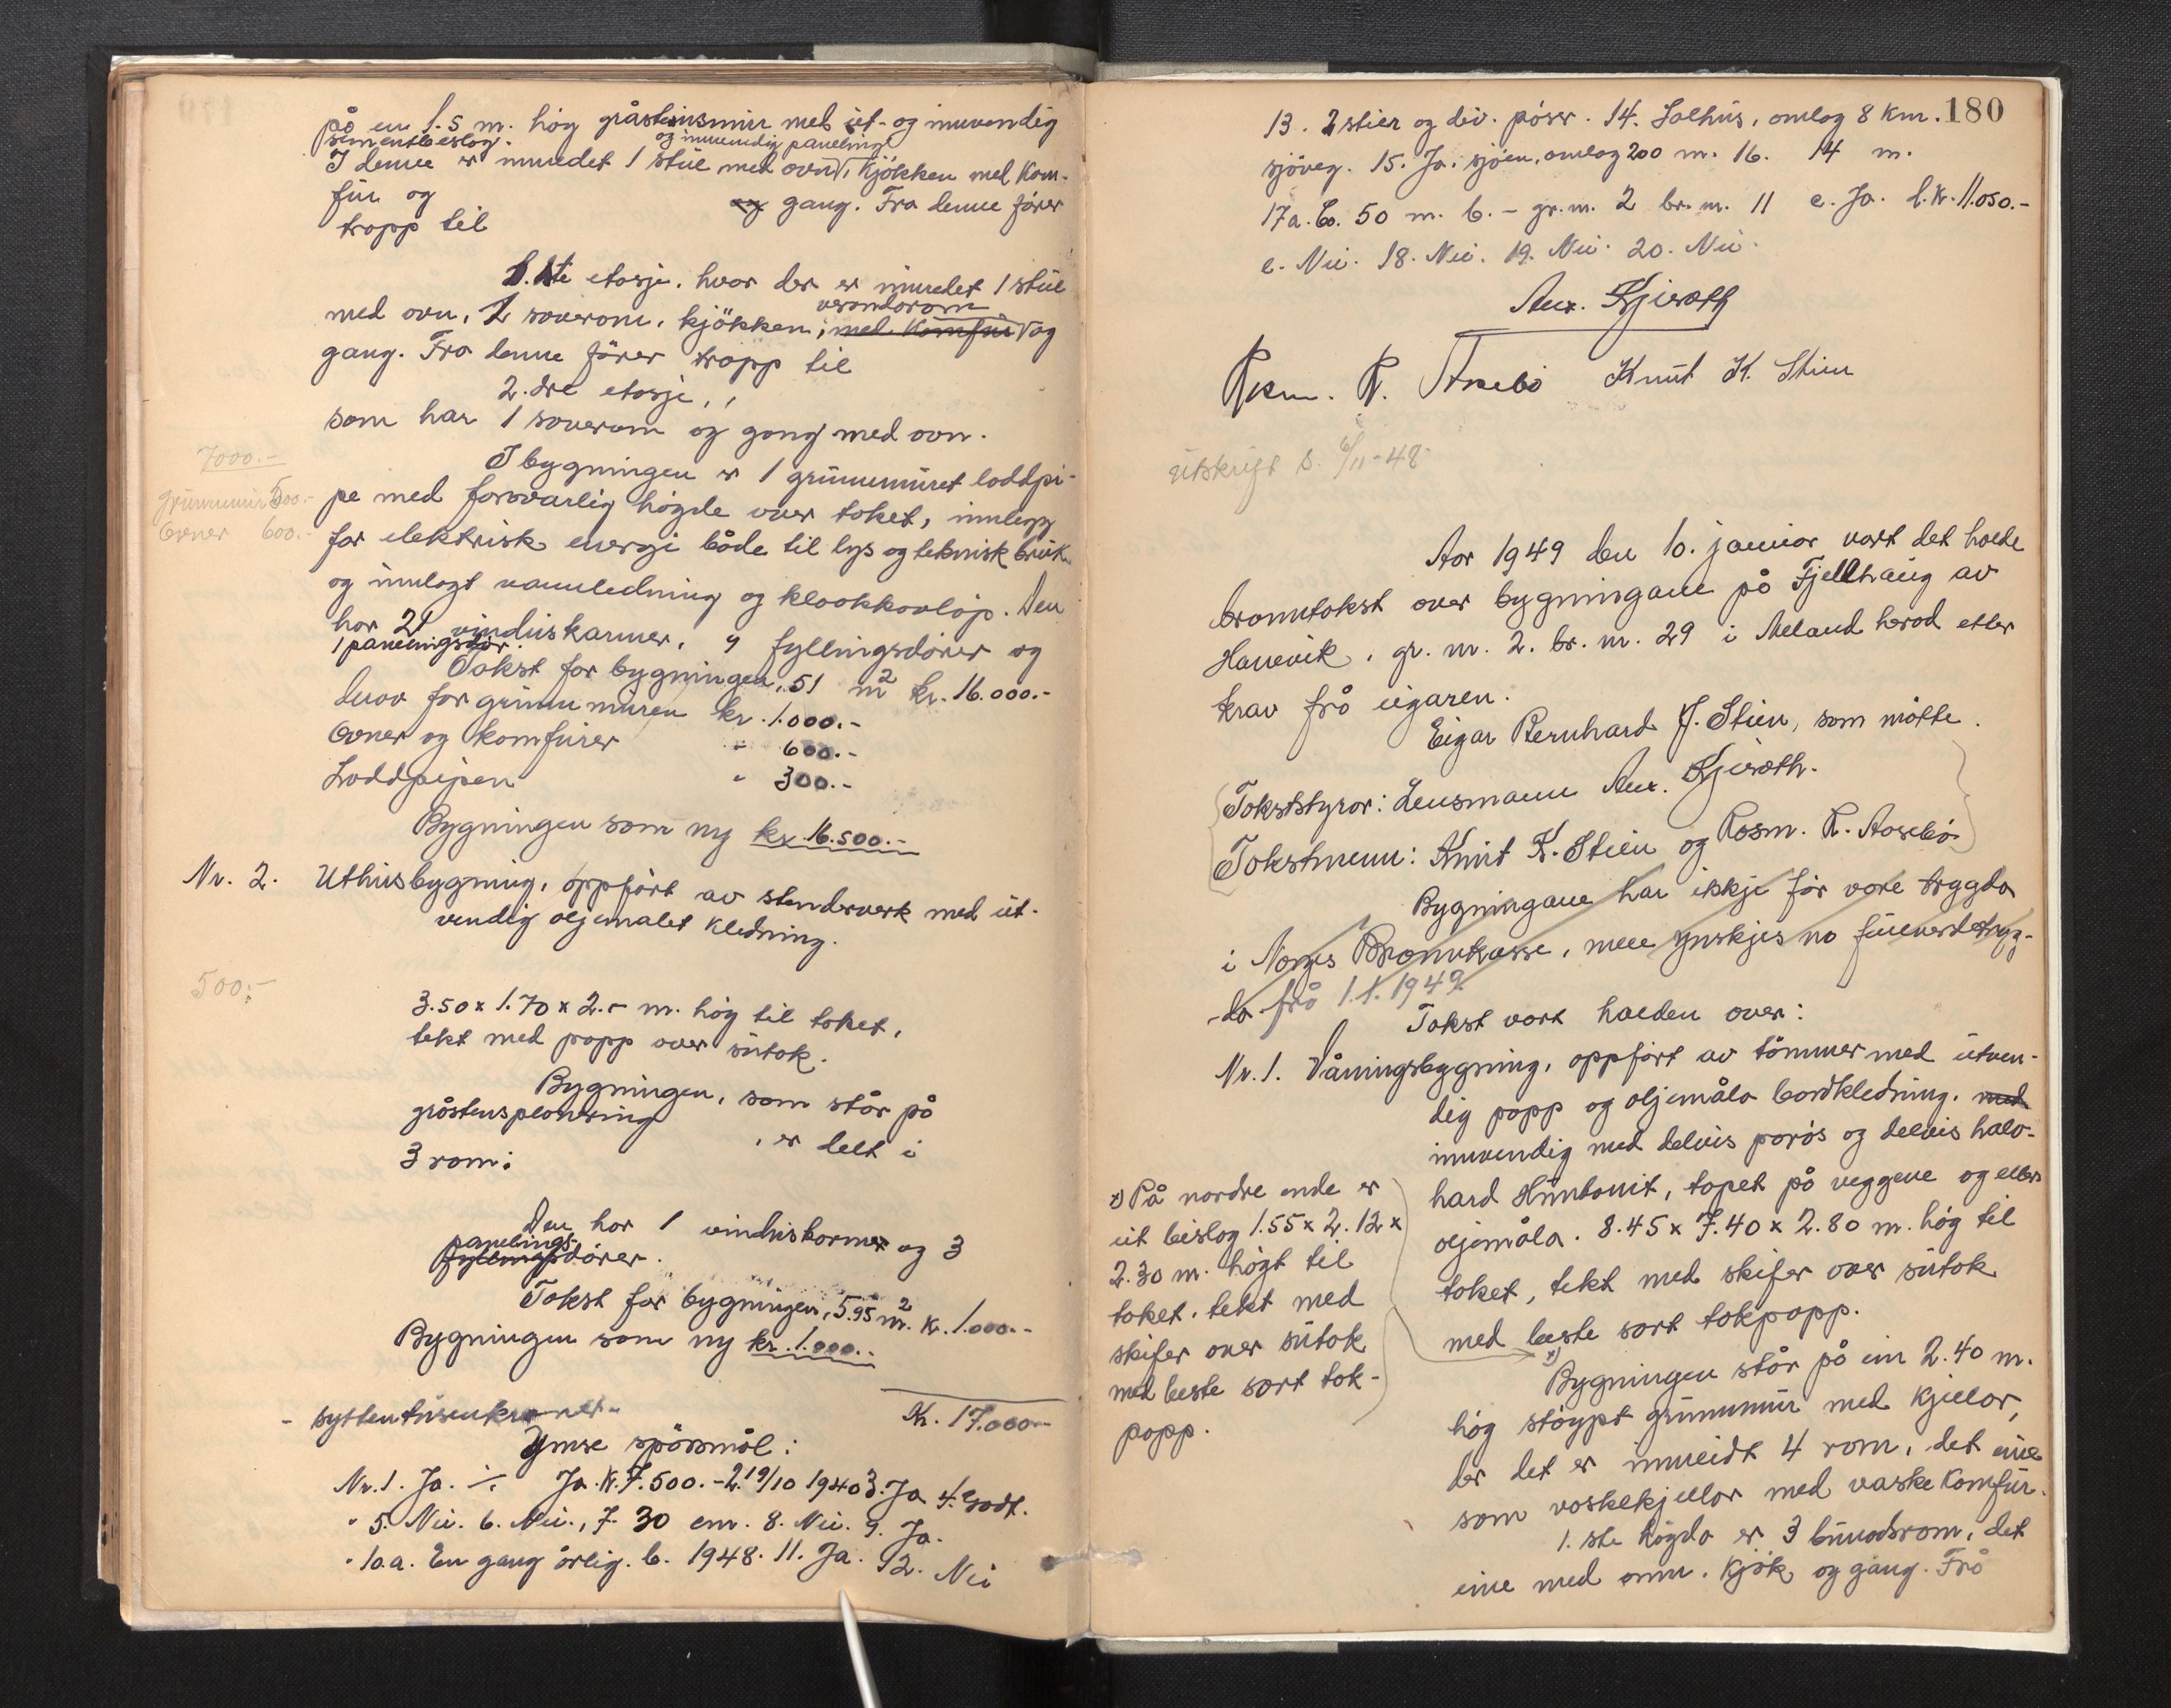 på en 1.5 m. høg gråsteinsmur med ut- og innvendig
sementbeslag.
og innvendig paneling
I denne er innredet 1 stue med ovn, kjökken med kom-
fur og
og gang. Fra denne förer
trapp til
1.ste etasje, hvor der er innredet 1 stue
verandarom
med ovn, 2 soverom, kjökken, med komfur og
gang. Fra denne förer trapp til
2.dre etasje,
som har 1 soverom og gang med ovn.
7000.-
I bygningen er 1 grunnmuret loddpi-
grunnmur 500.-
pe med forsvarlig høgde over taket, innlegg
Ovner 600.-
for elektrisk energi både til lys og teknisk bruk
og innlagt vannledning og kloakkavløp. Den
har 21 vinduskarmer, 9 fyllingsdörer og
1 panelingsdør.
Takst for bygningen, 51 m2 kr. 16.000.-
Derav for grunnmuren kr. 1.000.-
Ovner og komfurer " 600.-
Loddpipen " 300.-
Bygningen som ny kr. 16.500.-
Nr. 2. Uthusbygning, oppført av stenderverk med ut-
vendig oljemalet kledning.
500.-
3.50 x 1.70 x 2.- m. høg til taket,
tekt med papp over sutak.
Bygningen, som står på
gråstensplanering
, er delt i
3 rom:
Den har 1 vinduskarmer og 3
panelings-
fyllingsdörer.
Takst for bygningen, 5.95 m2. kr. 1.000.-
Bygningen som ny kr. 1.000.-
- syttentusenkroner -
Kr. 17.000.-
Ymse spörsmål:
Nr. 1. Ja. ÷ Ja. kr. 7.500.- 2. 19/10 1940 3. Ja 4. Godt.
" 5. Nei. 6. Nei., 7. 30 cm. 8. Nei. 9. Ja.
" 10.a. En gang årlig. b. 1948. 11. Ja. 12. Nei
180
13. 2 stier og div. pöser. 14. Salhus, omlag 8 km.
sjöveg. 15. Ja. sjöen, omlag 200 m. 16. 14 m.
17a. Co. 50 m. b. - gr.nr. 2 br.nr. 11 c. Ja. d. kr. 11.050.-
e. Nei. 18. Nei. 19. Nei. 20. Nei.
Anx. Kjieråth
R. Knut K. Stien
Utskrift s. 6/11-48
Aar 1949 den 10. januar vart det halde
branntakst over bygningane på Fjellhaug av
Hanevik, gr. nr. 2. br. nr. 29 i Meland herad etter
krav frå eigaren.
Eigar Bernhard J. Stien, som møtte.
Takststyrar: Lensmann Anx. Kjieråth.
Takstmenn: Knut K. Stien og Rasm. R. Aasebø
Bygningane har ikkje för vore trygda
i Norges Brannkasse, men ynskjes no fullverdetryg-
da frå 1.1.1949.
Takst vart halden over:
Nr. 1. Våningsbygning, oppført av tömmer med utven-
dig papp og oljemåla bordkledning. med
innvendig med delvis porös og delvis halv-
hard Huntonit, tapet på veggene og eller
oljemåla. 8.45 x 7.40 x 2.80 m. høg til
taket, tekt med skifer over sutak
med beste sort takpapp.
x) På nordre ende er
eit beislag 1.55 x 2.12 x
2.30 m. högt til
taket, tekt med
skifer over sutak
med beste sort tak-
papp.
x)
Bygningen står på ein 2.40 m.
høg støypt grunnmur med kjellar,
der det er innreidt 4 rom, det eine
som vaskekjellar med vaskekomfur.
1.ste høgda er 3 bunadsrom, det
eine med omn, kjök. og gang. Frå